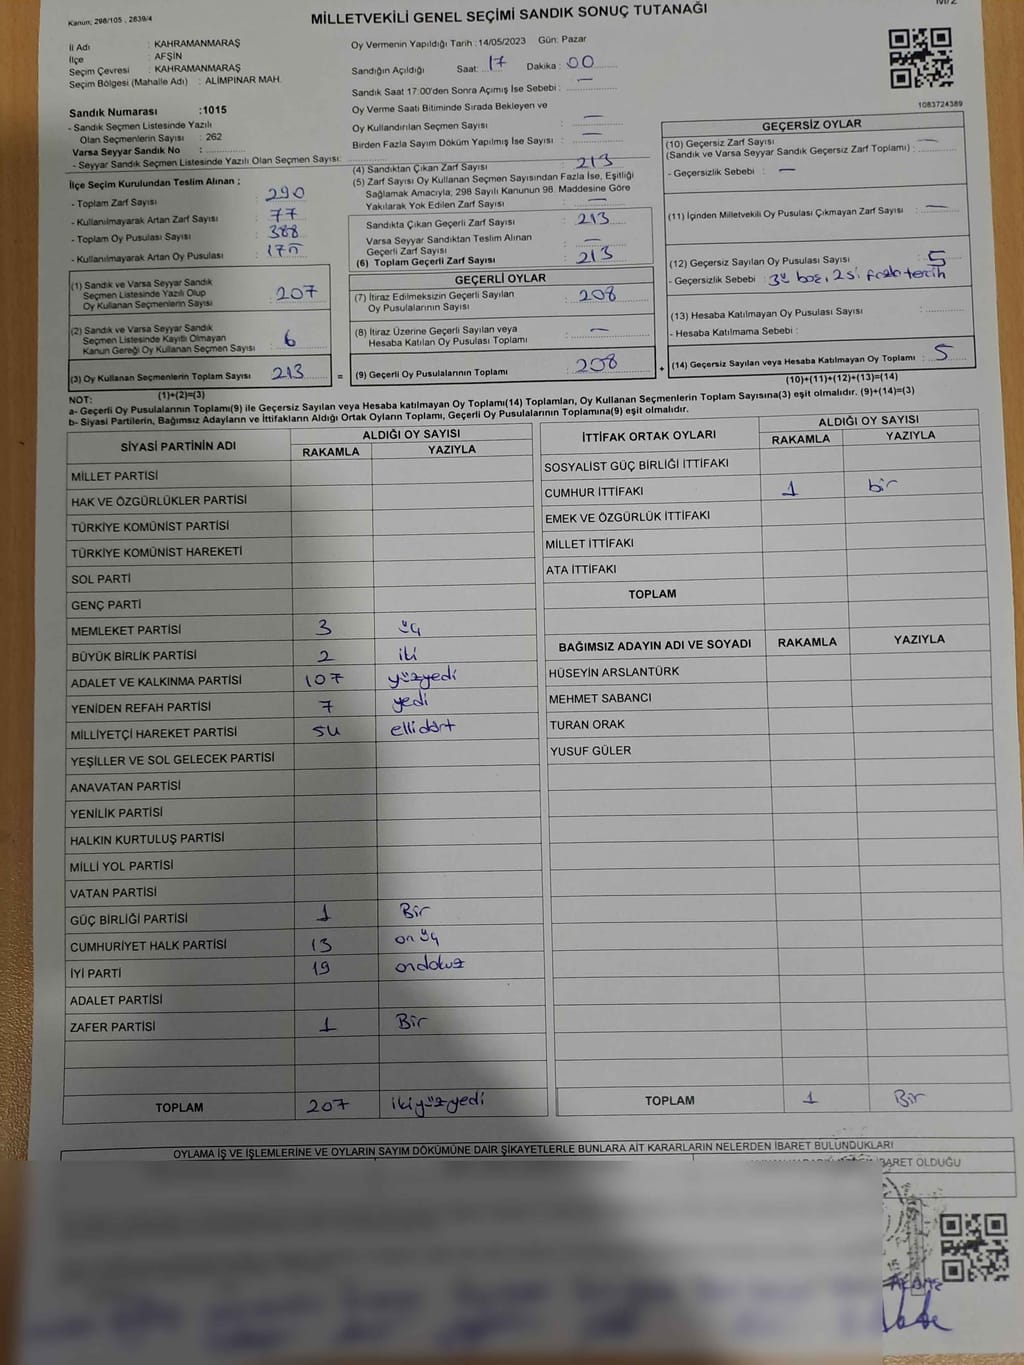 Kanun; 298/105 , 2839/4
MİLLETVEKİLİ GENEL SEÇİMİ SANDIK SONUÇ TUTANAĞI
İl Adı : KAHRAMANMARAŞ
İlçe : AFŞİN
Seçim Çevresi : KAHRAMANMARAŞ
Seçim Bölgesi (Mahalle Adı) : ALİMPINAR MAH.
Oy Vermenin Yapıldığı Tarih : 14/05/2023 Gün: Pazar
Sandığın Açıldığı Saat: 17 Dakika : 00
Sandık Saat 17:00'den Sonra Açımış İse Sebebi : —
Oy Verme Saati Bitiminde Sırada Bekleyen ve
Oy Kullandırılan Seçmen Sayısı : —
Birden Fazla Sayım Döküm Yapılmış İse Sayısı : —
1083724389
Sandık Numarası :1015
- Sandık Seçmen Listesinde Yazılı
Olan Seçmenlerin Sayısı : 262
Varsa Seyyar Sandık No :
- Seyyar Sandık Seçmen Listesinde Yazılı Olan Seçmen Sayısı:
İlçe Seçim Kurulundan Teslim Alınan ;
- Toplam Zarf Sayısı : 290
- Kullanılmayarak Artan Zarf Sayısı : 77
- Toplam Oy Pusulası Sayısı : 388
- Kullanılmayarak Artan Oy Pusulası : 175
(1) Sandık ve Varsa Seyyar Sandık
Seçmen Listesinde Yazılı Olup
Oy Kullanan Seçmenlerin Sayısı : 207
(2) Sandık ve Varsa Seyyar Sandık
Seçmen Listesinde Kayıtlı Olmayan
Kanun Gereği Oy Kullanan Seçmen Sayısı : 6
(3) Oy Kullanan Seçmenlerin Toplam Sayısı : 213
(1)+(2)=(3)
(4) Sandıktan Çıkan Zarf Sayısı : 213
(5) Zarf Sayısı Oy Kullanan Seçmen Sayısından Fazla İse, Eşitliği
Sağlamak Amacıyla, 298 Sayılı Kanunun 98. Maddesine Göre
Yakılarak Yok Edilen Zarf Sayısı : —
Sandıkta Çıkan Geçerli Zarf Sayısı : 213
Varsa Seyyar Sandıktan Teslim Alınan
Geçerli Zarf Sayısı : —
(6) Toplam Geçerli Zarf Sayısı : 213
GEÇERLİ OYLAR
(7) İtiraz Edilmeksizin Geçerli Sayılan
Oy Pusulalarının Sayısı : 208
(8) İtiraz Üzerine Geçerli Sayılan veya
Hesaba Katılan Oy Pusulası Toplamı : —
= (9) Geçerli Oy Pusulalarının Toplamı : 208
GEÇERSİZ OYLAR
(10) Geçersiz Zarf Sayısı
(Sandık ve Varsa Seyyar Sandık Geçersiz Zarf Toplamı) : —
- Geçersizlik Sebebi : —
(11) İçinden Milletvekili Oy Pusulası Çıkmayan Zarf Sayısı : —
(12) Geçersiz Sayılan Oy Pusulası Sayısı : 5
- Geçersizlik Sebebi : 3'ü boş, 2si fazla tercih
(13) Hesaba Katılmayan Oy Pusulası Sayısı :
- Hesaba Katılmama Sebebi :
+ (14) Geçersiz Sayılan veya Hesaba Katılmayan Oy Toplamı : 5
(10)+(11)+(12)+(13)=(14)
NOT:
a- Geçerli Oy Pusulalarının Toplamı(9) ile Geçersiz Sayılan veya Hesaba katılmayan Oy Toplamı(14) Toplamları, Oy Kullanan Seçmenlerin Toplam Sayısına(3) eşit olmalıdır. (9)+(14)=(3)
b- Siyasi Partilerin, Bağımsız Adayların ve İttifakların Aldığı Ortak Oyların Toplamı, Geçerli Oy Pusulalarının Toplamına(9) eşit olmalıdır.
SİYASİ PARTİNİN ADI ALDIĞI OY SAYISI
RAKAMLA YAZIYLA
MİLLET PARTİSİ
HAK VE ÖZGÜRLÜKLER PARTİSİ
TÜRKİYE KOMÜNİST PARTİSİ
TÜRKİYE KOMÜNİST HAREKETİ
SOL PARTİ
GENÇ PARTİ
MEMLEKET PARTİSİ 3 üç
BÜYÜK BİRLİK PARTİSİ 2 iki
ADALET VE KALKINMA PARTİSİ 107 yüzyedi
YENİDEN REFAH PARTİSİ 7 yedi
MİLLİYETÇİ HAREKET PARTİSİ 54 ellidört
YEŞİLLER VE SOL GELECEK PARTİSİ
ANAVATAN PARTİSİ
YENİLİK PARTİSİ
HALKIN KURTULUŞ PARTİSİ
MİLLİ YOL PARTİSİ
VATAN PARTİSİ
GÜÇ BİRLİĞİ PARTİSİ 1 Bir
CUMHURİYET HALK PARTİSİ 13 on üç
İYİ PARTİ 19 ondokuz
ADALET PARTİSİ
ZAFER PARTİSİ 1 Bir
TOPLAM 207 ikiyüzyedi
İTTİFAK ORTAK OYLARI ALDIĞI OY SAYISI
RAKAMLA YAZIYLA
SOSYALİST GÜÇ BİRLİĞİ İTTİFAKI
CUMHUR İTTİFAKI 1 bir
EMEK VE ÖZGÜRLÜK İTTİFAKI
MİLLET İTTİFAKI
ATA İTTİFAKI
TOPLAM
BAĞIMSIZ ADAYIN ADI VE SOYADI RAKAMLA YAZIYLA
HÜSEYİN ARSLANTÜRK
MEHMET SABANCI
TURAN ORAK
YUSUF GÜLER
TOPLAM 1 Bir
OYLAMA İŞ VE İŞLEMLERİNE VE OYLARIN SAYIM DÖKÜMÜNE DAİR ŞİKAYETLERLE BUNLARA AİT KARARLARIN NELERDEN İBARET BULUNDUKLARI
İBARET OLDUĞU